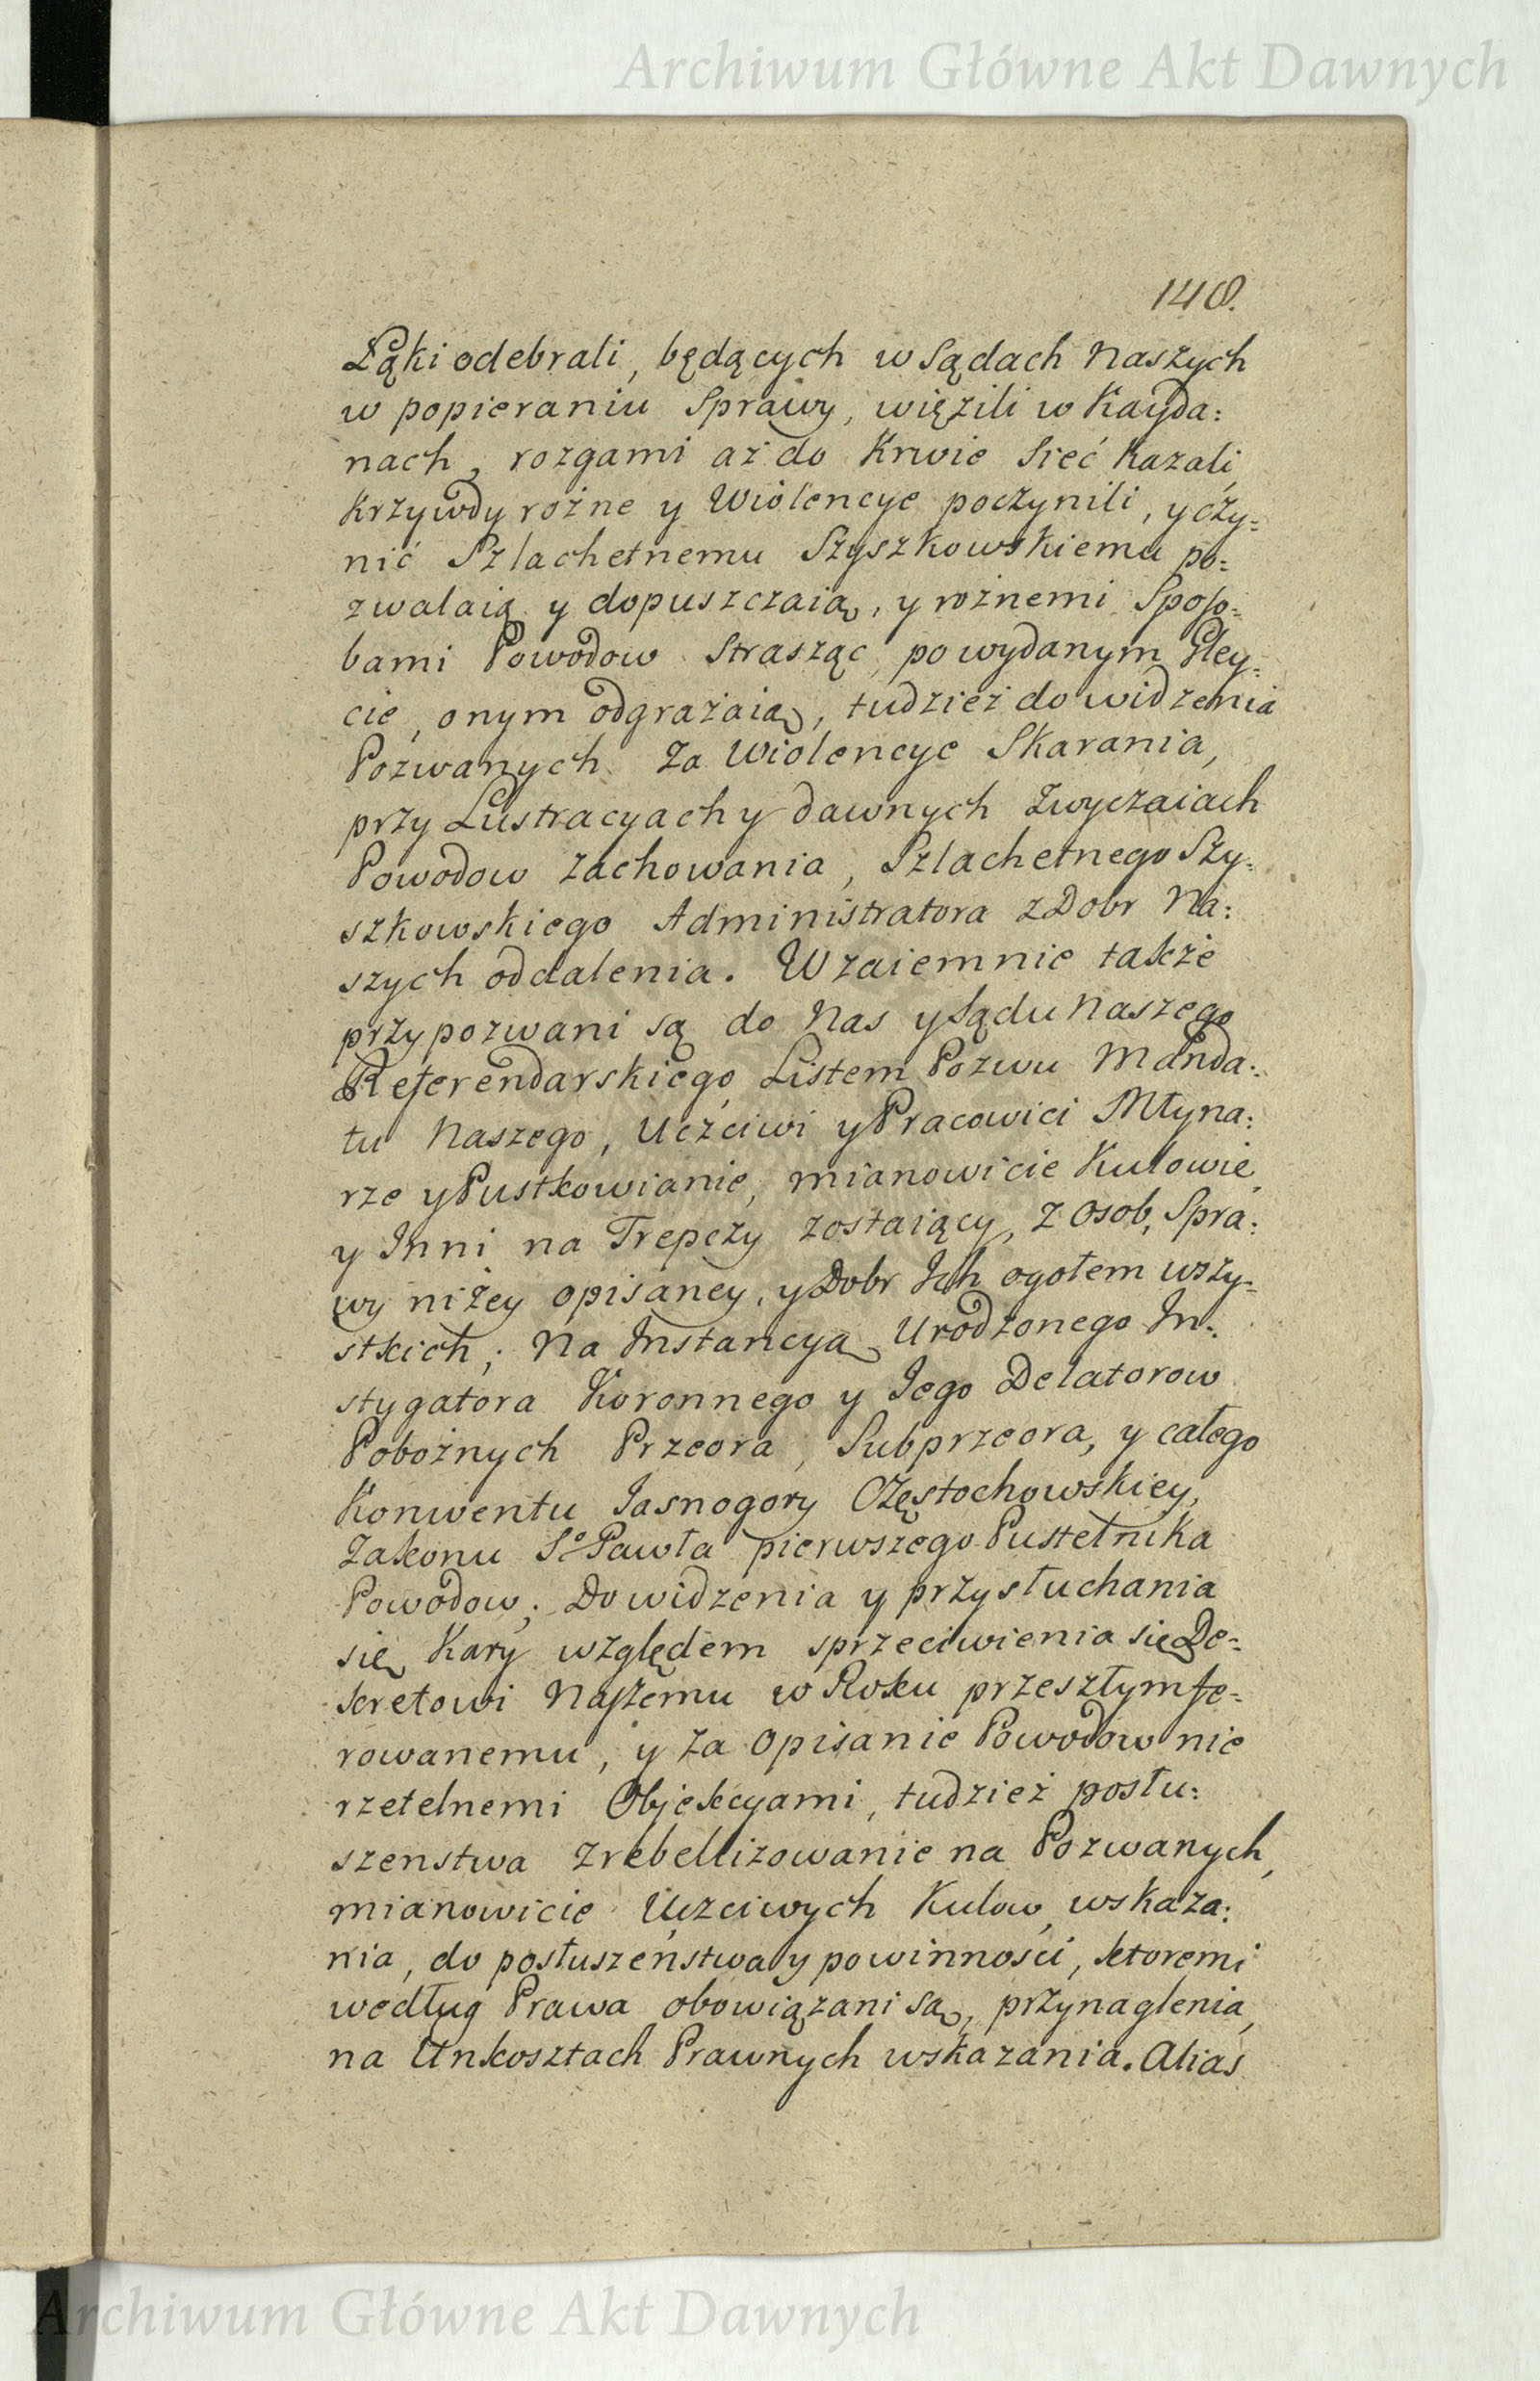 Archiwum Główne Akt Dawnych
148.
Łąki odebrali, będących w Sądach Naszych
w popieraniu Sprawy, więzili w Kayda:
nach, rozgami aż do Krwie Sieć Kazali,
Krzywdy rożne y Wiolencye poczynili, y czy=
nić Szlachetnemu Szyszkowskiemu po=
zwalaią y dopuszczaią, y rożnemi Sposo=
bami Powodow Strasząc, po wydanym Gley=
cie, onym odgrażaią, tudzież do widzenia
Pozwanych za Wiolencye Skarania,
przy Lustracyach y dawnych Zwyczaiach
Powodow zachowania, Szlachetnego Szy=
szkowskiego Administratora z Dobr Na:
szych oddalenia. Wzaiemnie także
przypozwani są do Nas y Sądu Naszego
Referendarskiego Listem Pozwu Manda:
tu Naszego, Uczciwi y Pracowici Młyna:
rze y Pustkowianie, mianowicie Kulowie,
y Inni na Trepczy zostaiący, z Osob, Spra:
wy niżey opisaney, y Dobr Ich ogołem wszy=
stkich; Na Instancyą Urodzonego In=
stygatora Koronnego y Jego Delatorow
Pobożnych Przeora, Subprzeora, y całego
Konwentu Jasnogory Częstochowskiey,
Zakonu So Pawła pierwszego Pustelnika
Powodow; Do widzenia y przysłuchania
się Kary względem sprzeciwienia się De=
kretowi Naszemu w Roku przeszłym fe=
rowanemu, y za opisanie Powodow nie
rzetelnemi Objekcyami, tudzież posłu:
szenstwa zrebellizowanie na Pozwanych,
mianowicie Uczciwych Kulow, wskaza:
nia, do posłuszeństwa y powinności, ktoremi
według Prawa obowiązani są, przynaglenia,
na Unkosztach Prawnych wskazania. Alias
Archiwum Główne Akt Dawnych